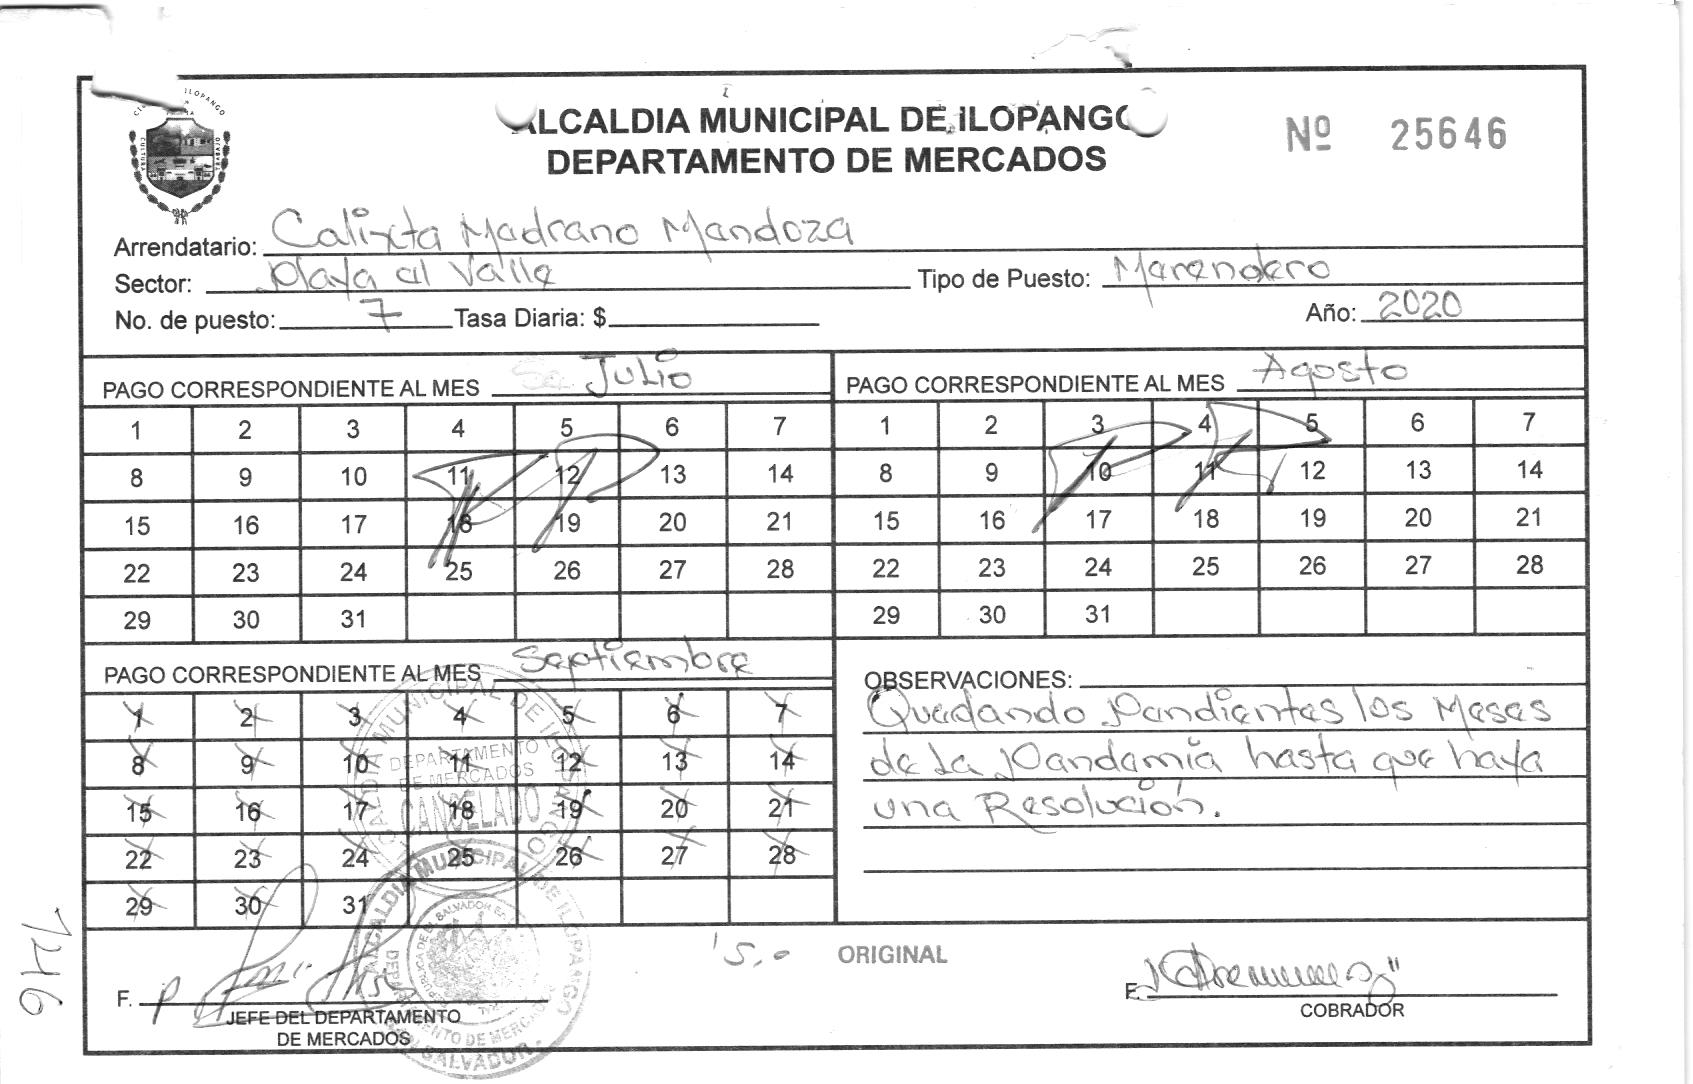 ALCALDIA MUNICIPAL DE ILOPANGO
DEPARTAMENTO DE MERCADOS
Nº 25646
Arrendatario: Calixta Madrano Mandoza
Sector: playa al Valle Tipo de Puesto: Marandero
No. de puesto: 7 Tasa Diaria: $ Año: 2020
PAGO CORRESPONDIENTE AL MES Julio
1 2 3 4 5 6 7
8 9 10 11 12 13 14
15 16 17 18 19 20 21
22 23 24 25 26 27 28
29 30 31
PAGO CORRESPONDIENTE AL MES Agosto
1 2 3 4 5 6 7
8 9 10 11 12 13 14
15 16 17 18 19 20 21
22 23 24 25 26 27 28
29 30 31
PAGO CORRESPONDIENTE AL MES Septiembre
1 2 3 4 5 6 7
8 9 10 11 12 13 14
15 16 17 18 19 20 21
22 23 24 25 26 27 28
29 30 31
ALCALDIA MUNICIPAL DE ILOPANGO
DEPARTAMENTO
DE MERCADOS
CANCELADO
OBSERVACIONES:
Quedando pendientes los Meses
de la pandemia hasta que haya
una Resolución.
ALCALDIA MUNICIPAL DE ILOPANGO
DEPARTAMENTO DE MERCADOS
EL SALVADOR
ORIGINAL
F.
JEFE DEL DEPARTAMENTO
DE MERCADOS
F.
COBRADOR